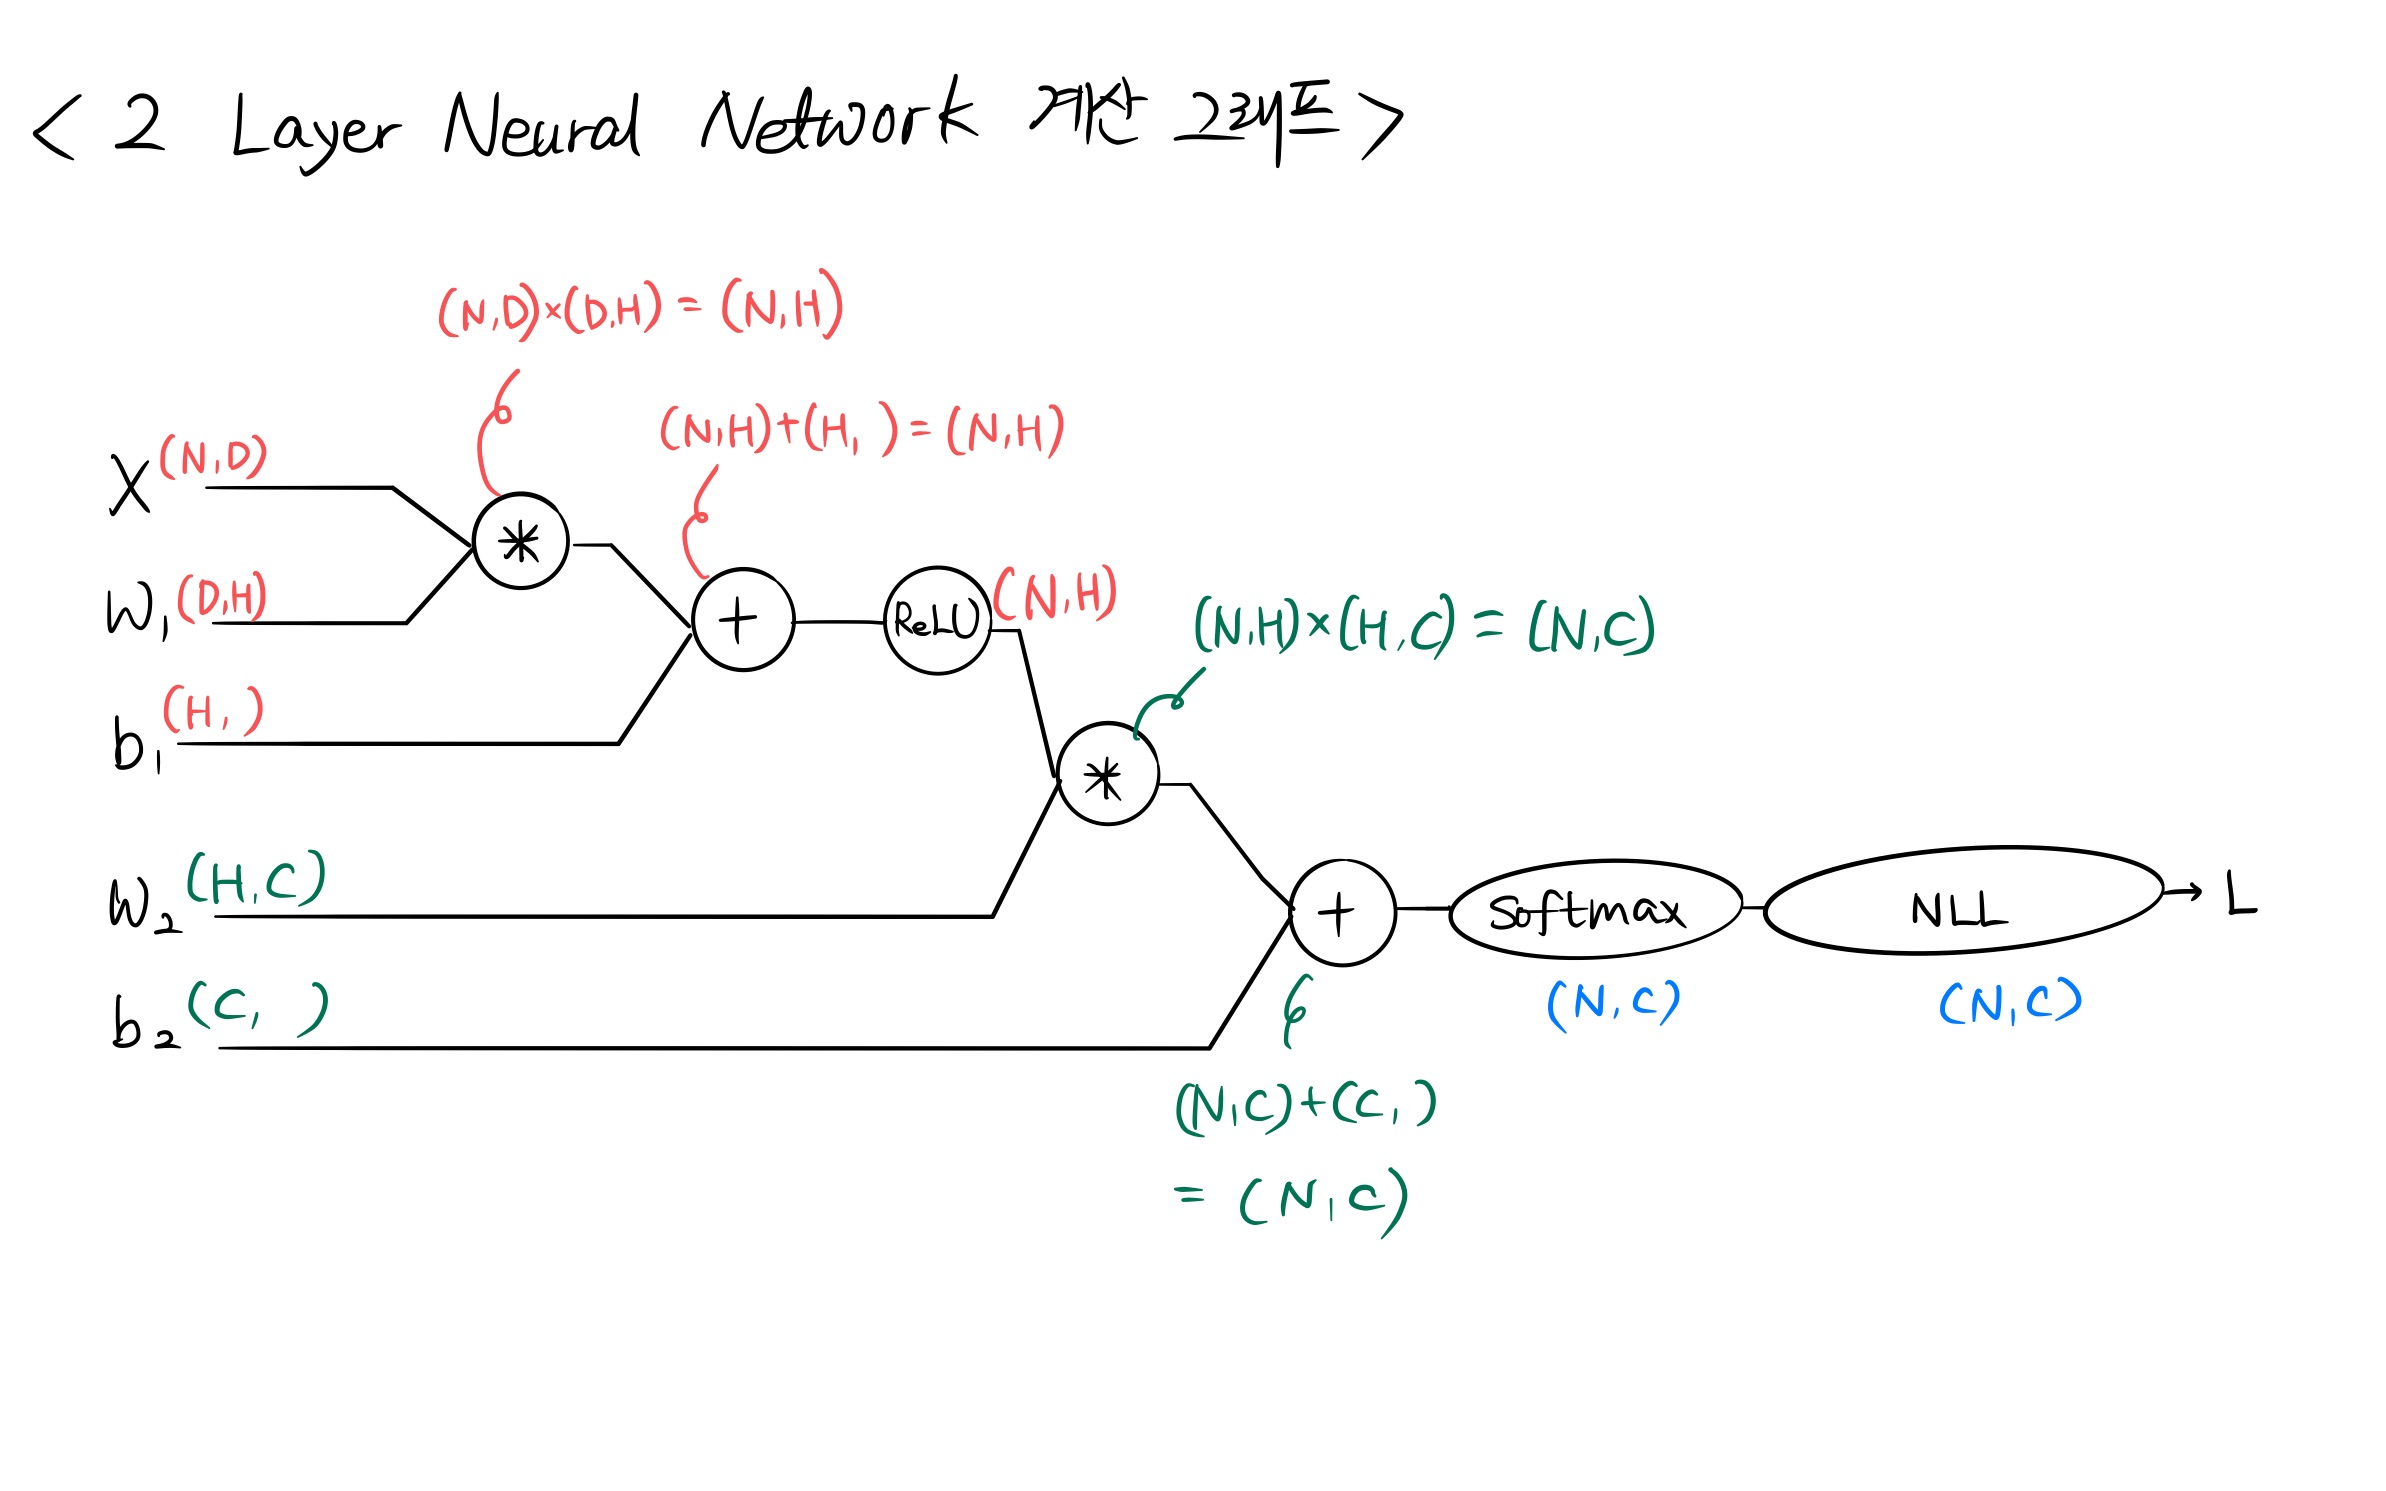 < 2 Layer Neural Network 계산 그래프 >
(N,D)×(D,H) = (N,H)
(N,H)+(H, ) = (N,H)
X (N,D)
*
W1 (D,H)
+
ReLU
(N,H)
(N,H)×(H,C) = (N,C)
b1 (H, )
*
W2 (H,C)
+
softmax
NLL
L
b2 (C, )
(N,C)
(N,C)
(N,C)+(C, )
= (N,C)